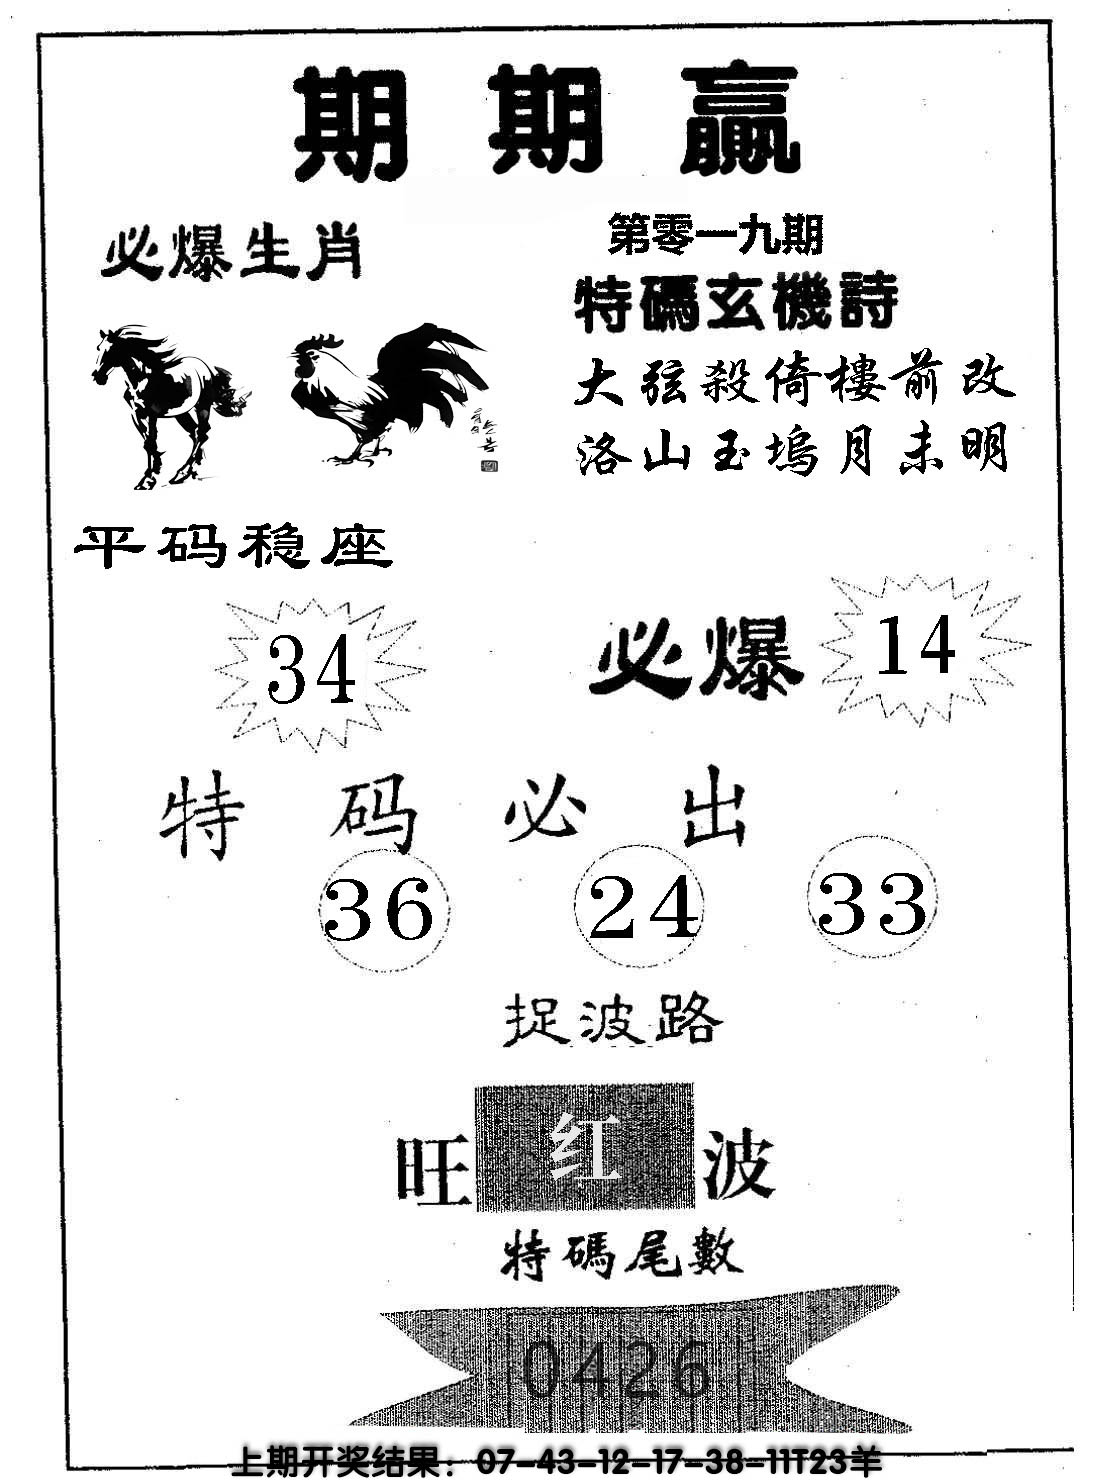 期期赢
必爆生肖
第零一九期
特碼玄機詩
大弦殺倚樓前改
洛山玉塢月未明
平码稳座
34
必爆 14
特码必出
36 24 33
捉波路
旺 红 波
特碼尾數
0426
上期开奖结果：07-43-12-17-38-11T23羊